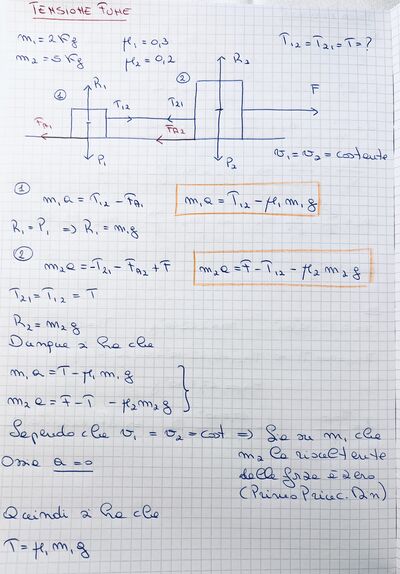 TENSIONE FUNE
m₁ = 2 Kg μ₁ = 0,3 T₁₂ = T₂₁ = T = ?
m₂ = 5 Kg μ₂ = 0,2
R₁ ② R₂
① T₁₂ T₂₁ F
F_A₁ F_A₂
P₁ P₂ v₁ = v₂ = costante
①
m₁a = T₁₂ - F_A₁ m₁a = T₁₂ - μ₁ m₁ g
R₁ = P₁ => R₁ = m₁g
②
m₂a = -T₂₁ - F_A₂ + F m₂a = F - T₁₂ - μ₂ m₂ g
T₂₁ = T₁₂ = T
R₂ = m₂ g
Dunque si ha che
m₁a = T - μ₁ m₁ g
m₂a = F - T - μ₂ m₂ g
Sapendo che v₁ = v₂ = cost => Sia su m₁ che
Ossia a = 0 m₂ la risultante
delle forze è zero
(Primo Princ. Din)
Quindi si ha che
T = μ₁ m₁ g